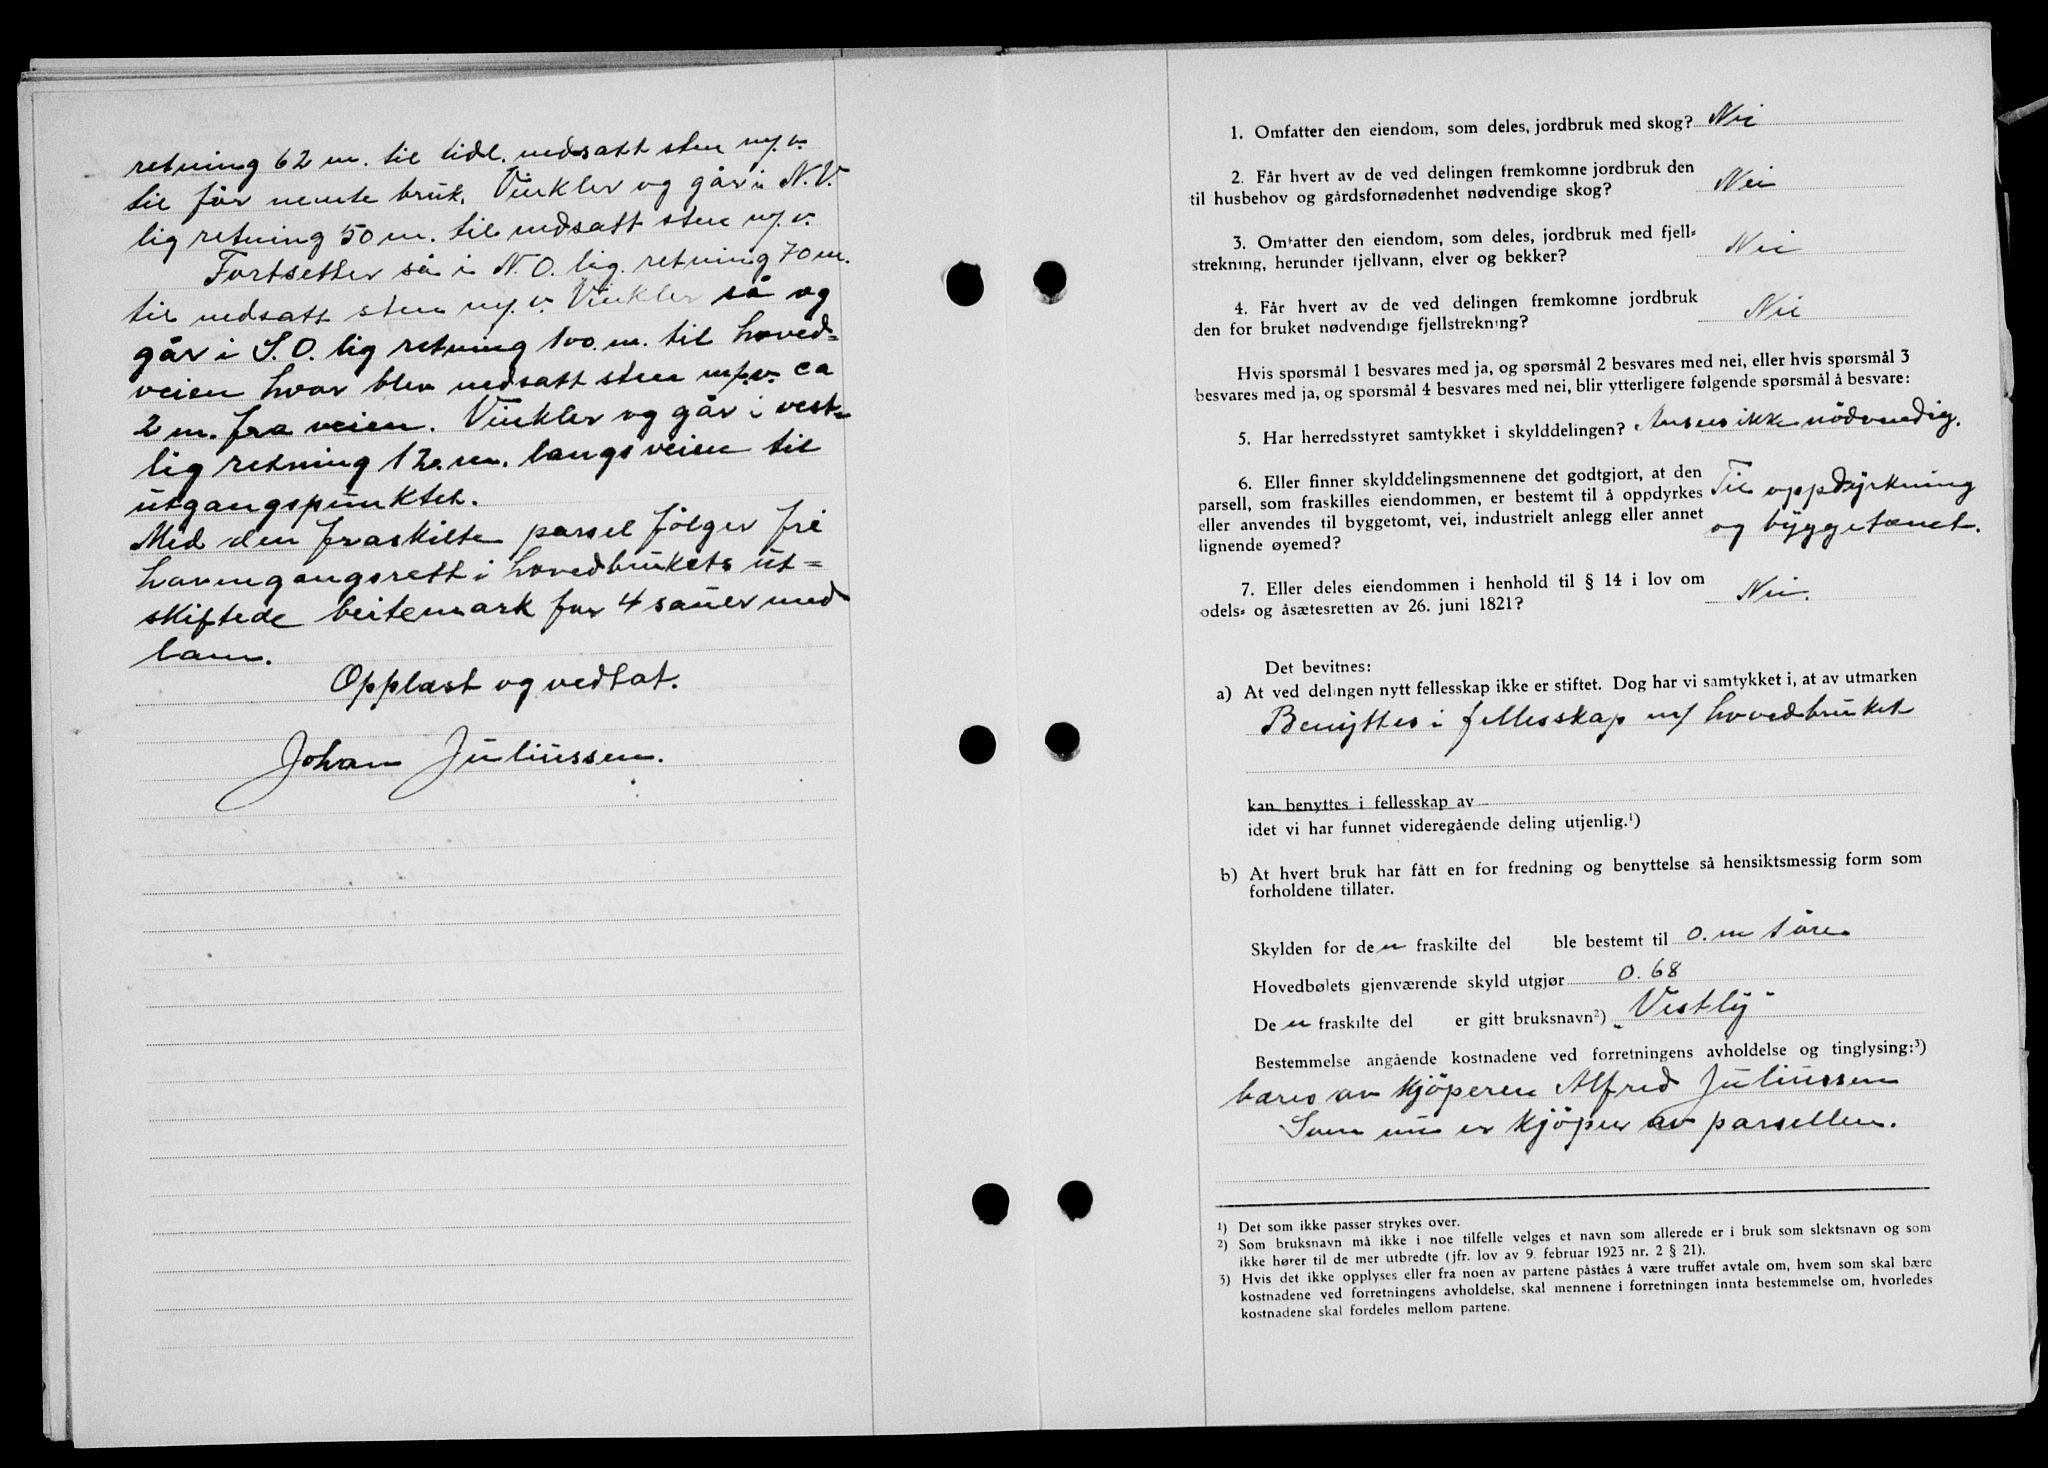 retning 62 m. til tidl. nedsatt sten m/.v.
til før nemte bruk. Vinkler og går i N.V.
lig retning 50 m. til nedsatt sten m/.v.
Fortsetter så i N.O. lig. retning 70 m.
til nedsatt sten m/.v. Vinkler så og
går i S.O. lig retning 100. m. til hoved-
veien hvor blev nedsatt sten m/.v. ca
2 m. fra veien. Vinkler og går i vest-
lig retning 120. m. langs veien til
utgangspunktet.
Med den fraskilte parsel følger fri
havnegangsrett i hovedbrukets ut-
skiftede beitemark for 4 sauer med
lam.
Opplæst og vedtat.
Johan Juliussen.
1. Omfatter den eiendom, som deles, jordbruk med skog? Nei
2. Får hvert av de ved delingen fremkomne jordbruk den
til husbehov og gårdsfornødenhet nødvendige skog? Nei
3. Omfatter den eiendom, som deles, jordbruk med fjell-
strekning, herunder fjellvann, elver og bekker? Nei
4. Får hvert av de ved delingen fremkomne jordbruk
den for bruket nødvendige fjellstrekning? Nei
Hvis spørsmål 1 besvares med ja, og spørsmål 2 besvares med nei, eller hvis spørsmål 3
besvares med ja, og spørsmål 4 besvares med nei, blir ytterligere følgende spørsmål å besvare:
5. Har herredsstyret samtykket i skylddelingen? Ansees ikke nödvendig.
6. Eller finner skylddelingsmennene det godtgjort, at den
parsell, som fraskilles eiendommen, er bestemt til å oppdyrkes Til oppdyrkning
eller anvendes til byggetomt, vei, industrielt anlegg eller annet og byggetomt.
lignende øyemed?
7. Eller deles eiendommen i henhold til § 14 i lov om
odels- og åsætesretten av 26. juni 1821? Nei.
Det bevitnes:
a) At ved delingen nytt fellesskap ikke er stiftet. Dog har vi samtykket i, at av utmarken
Benyttes i fellesskap m/ hovedbruket
kan benyttes i fellesskap av
idet vi har funnet videregående deling utjenlig.¹)
b) At hvert bruk har fått en for fredning og benyttelse så hensiktsmessig form som
forholdene tillater.
Skylden for den fraskilte del ble bestemt til 0. m 1 øre.
Hovedbølets gjenværende skyld utgjør 0.68
Den fraskilte del er gitt bruksnavn²) "Vestly"
Bestemmelse angående kostnadene ved forretningens avholdelse og tinglysing:³)
bæres av kjöperen Alfred Juliussen
Som nu er kjöper av parsellen.
¹) Det som ikke passer strykes over.
²) Som bruksnavn må ikke i noe tilfelle velges et navn som allerede er i bruk som slektsnavn og som
ikke hører til de mer utbredte (jfr. lov av 9. februar 1923 nr. 2 § 21).
³) Hvis det ikke opplyses eller fra noen av partene påståes å være truffet avtale om, hvem som skal bære
kostnadene ved forretningens avholdelse, skal mennene i forretningen innta bestemmelse om, hvorledes
kostnadene skal fordeles mellom partene.